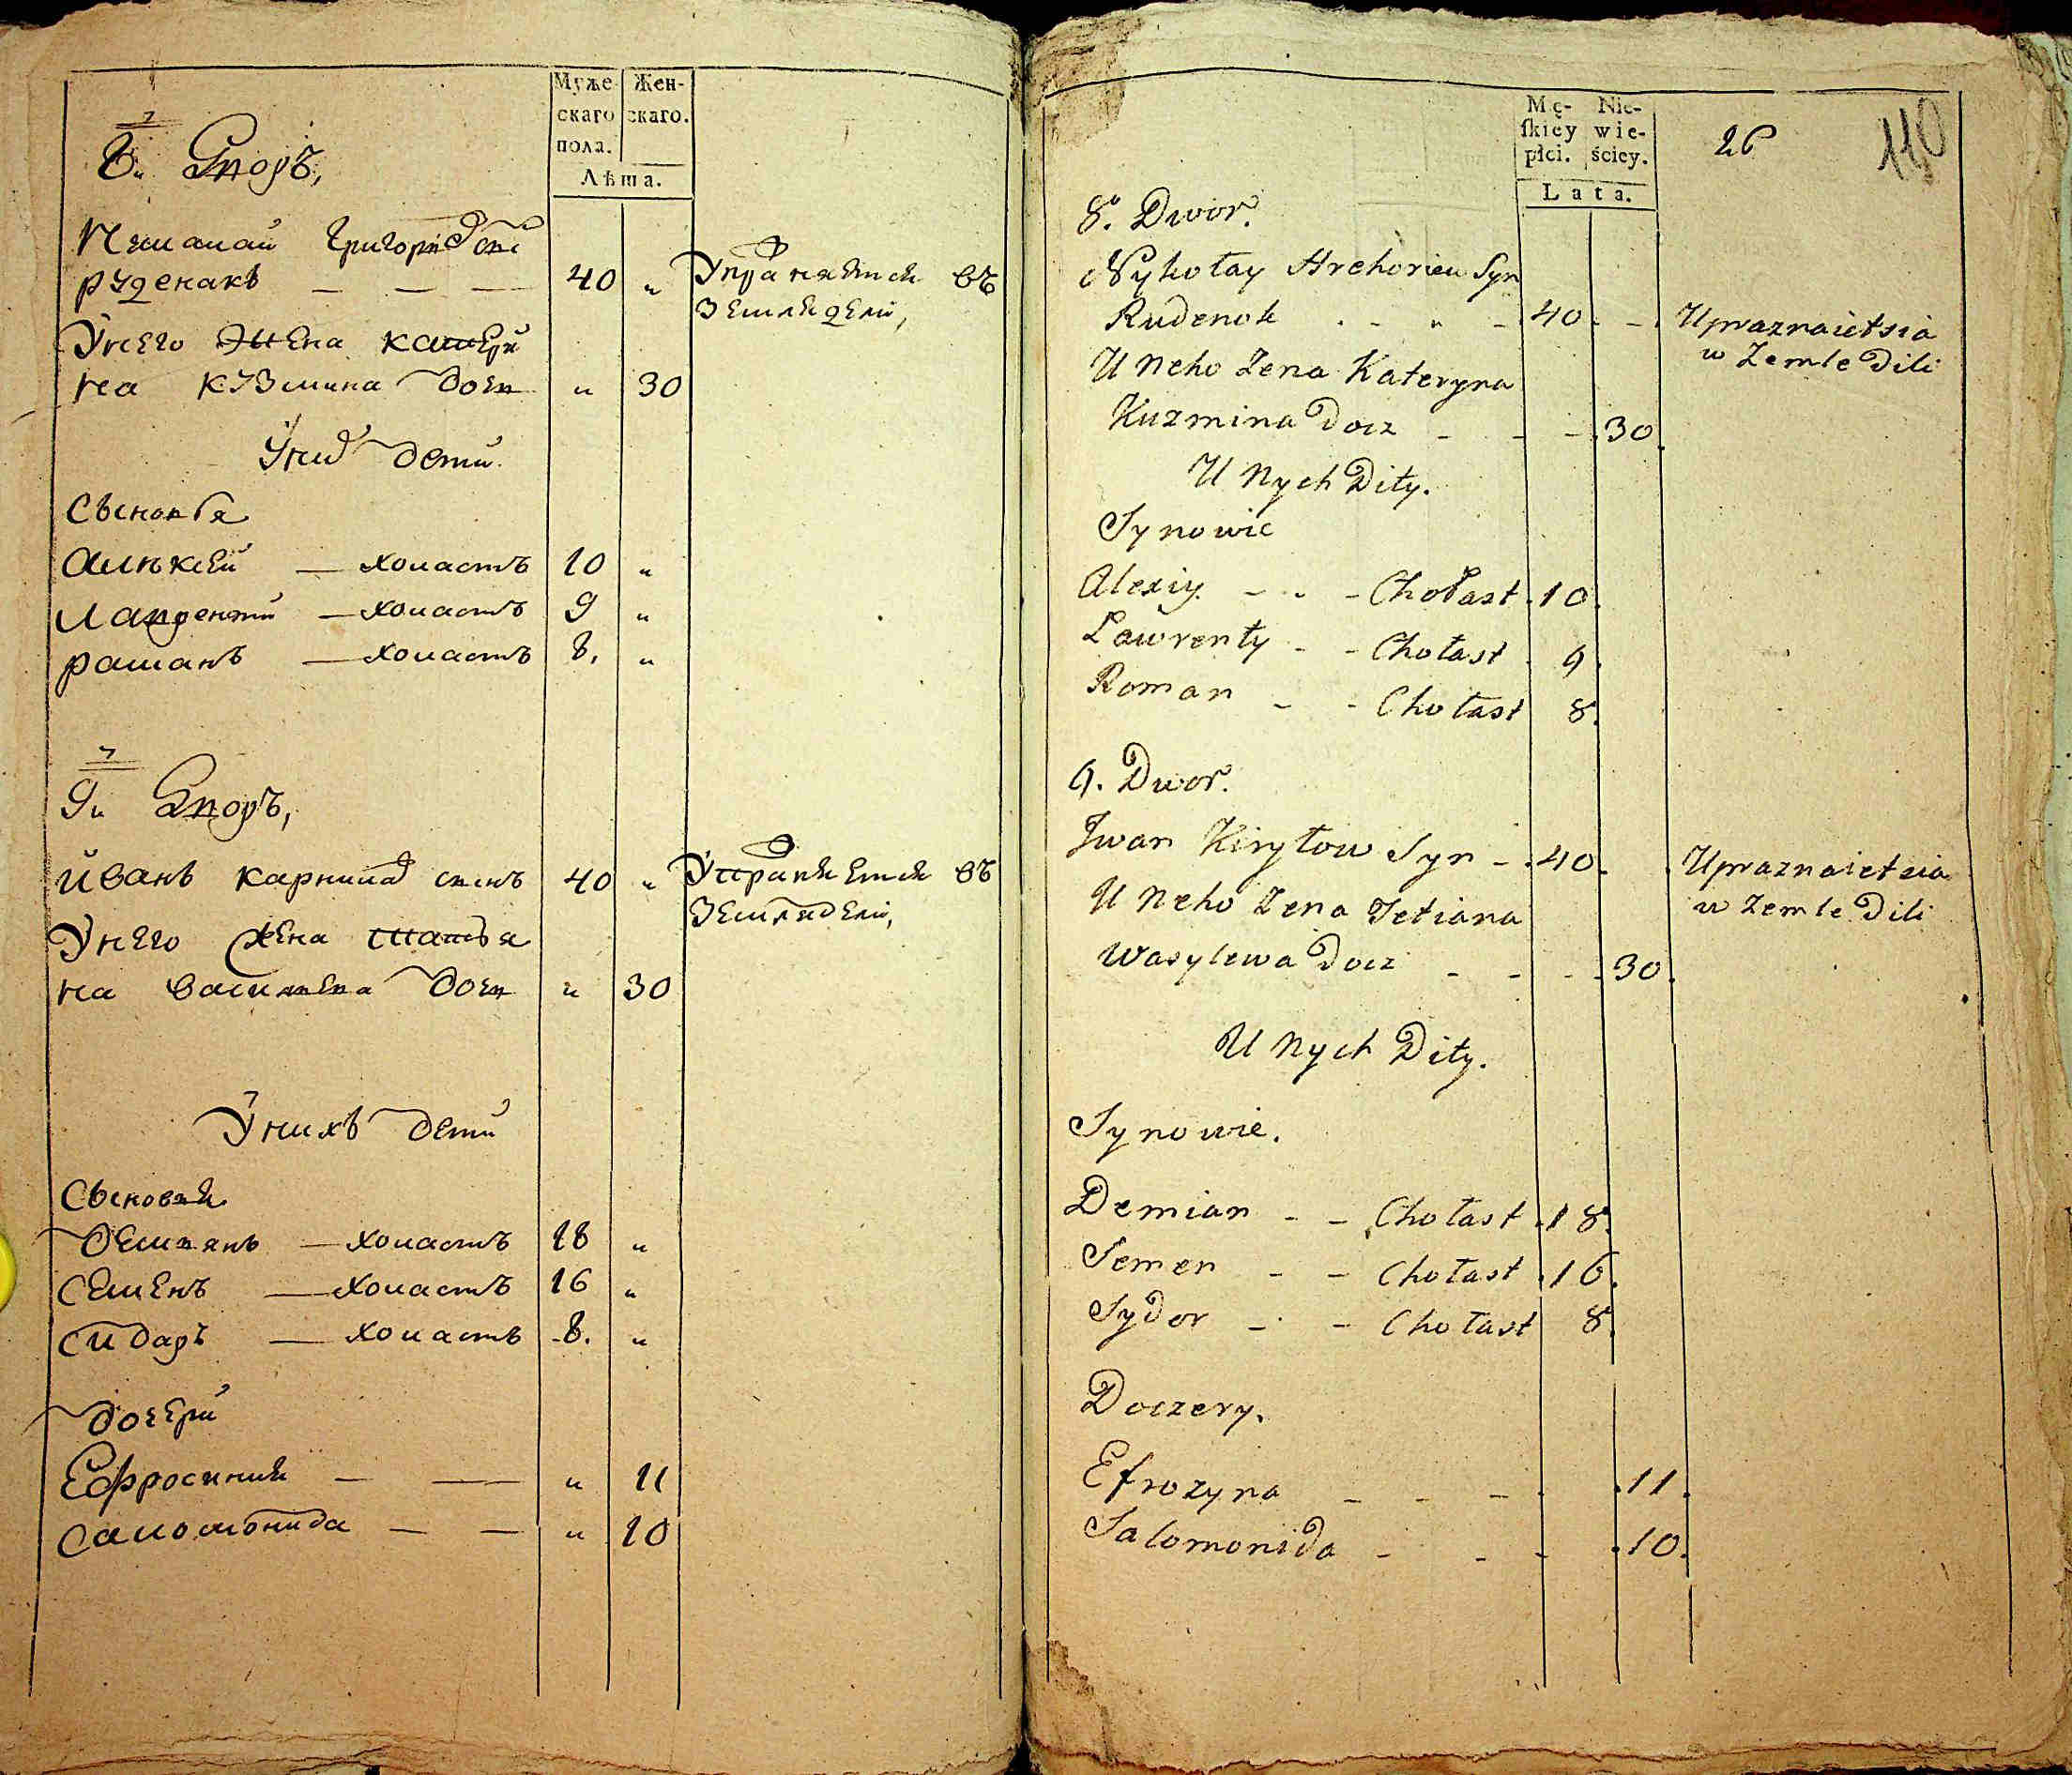 Муже Жен-
скаго скаго.
пола.
Лѣта.
8й Дворъ,
Николай Григориевъ снъ
руденакъ — — — 40 „ Упражняется въ
земледели,
Унего жена катери
на кузмина дочь „ 30
Уних дети
Сыновья
Алексей — холастъ 10 „
Лаврентий — холастъ 9 „
раманъ — холастъ 8. „
9й Дворъ,
Иванъ сынъ 40 „ Упражняется въ
земледели,
Унего жена татья
на васильева дочь „ 30
Унихъ дети
Сыновья
демьянъ — холастъ 18 „
семенъ — холастъ 16 „
сидаръ — холастъ 8. „
дочери
Ефросиния — — „ 11
саломонида — — „ 10
Mę- Nie-
skiey wie-
płci. ściey.
Lata.
26 110
8. Dwor.
Nykołay Hrehoriew Syn
Rudenok 40 Uprazniaietsia
w Zemle Dili
U Neho Zena Kateryna
Kuzmina Docz - - - 30
U Nych Dity.
Synowie
Alexiy - - - Chołast 10
Lawrenty - - Chołast 9
Roman - - Chołast 8
9. Dwor.
Jwan Kiryłow Syn - 40 Upraznaietsia
w Zemle Dili
U Neho Zena Tetiana
Wasylewa Docz - - - 30
U Nych Dity.
Synowie.
Demian - - Chołast 18
Semen - - Chołast 16
Sydor - - Chołast 8
Doczery.
Efrozyna - - - 11
Salomonida - - - 10